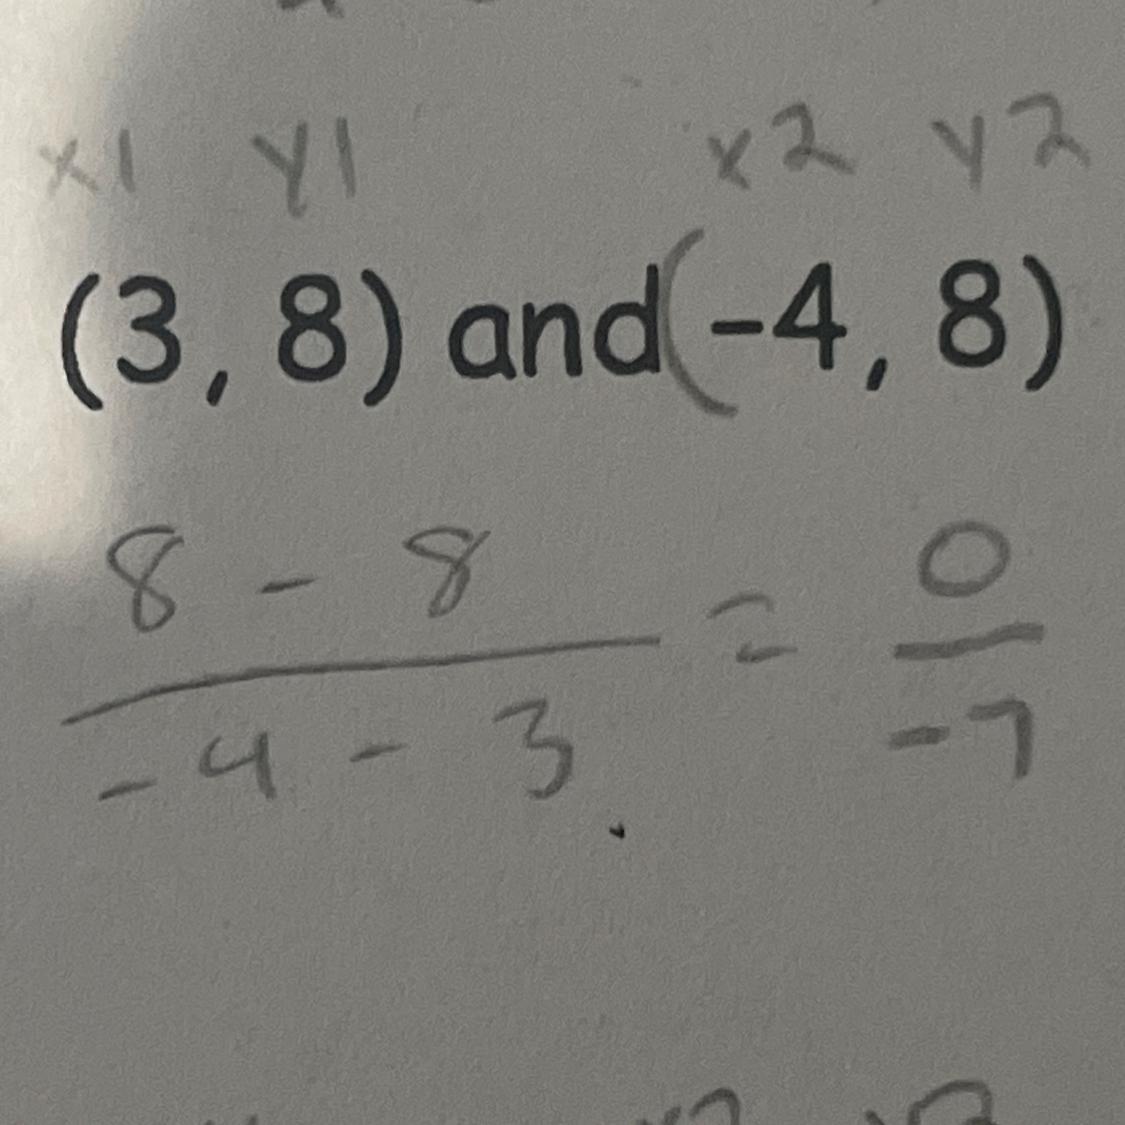 x1 y1 x2 y2
(3, 8) and (-4, 8)
8 - 8 = 0
-4 - 3 -7